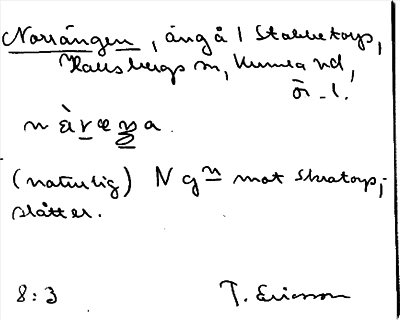 Norrängen, äng å 1 Stabbetorp,
Hallsbergs sn, Kumla hd,
Ör. l.
nàræŋa.
(naturlig) N gn mot Skratorp,-
slåtter.
8:3 T. Ericsson